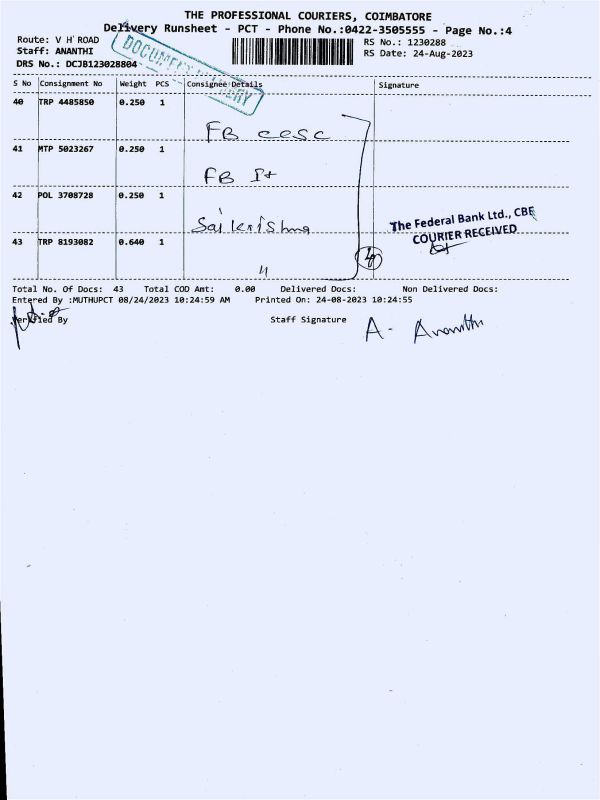 THE PROFESSIONAL COURIERS, COIMBATORE
Delivery Runsheet - PCT - Phone No.:0422-3505555 - Page No.:4
Route: V H ROAD
RS No.: 1230288
Staff: ANANTHI
RS Date: 24-Aug-2023
DRS No.: DCJB123028804
DOCUMENT DELIVERY
S No Consignment No Weight PCS Consignee Details Signature
40 TRP 4485850 0.250 1
FB cesc
41 MTP 5023267 0.250 1
FB It
42 POL 3708728 0.250 1
Saikrishna
The Federal Bank Ltd., CBE
COURIER RECEIVED
43 TRP 8193082 0.640 1
"
Total No. Of Docs: 43 Total COD Amt: 0.00 Delivered Docs: Non Delivered Docs:
Entered By :MUTHUPCT 08/24/2023 10:24:59 AM Printed On: 24-08-2023 10:24:55
Verified By Staff Signature
A. Ananthi